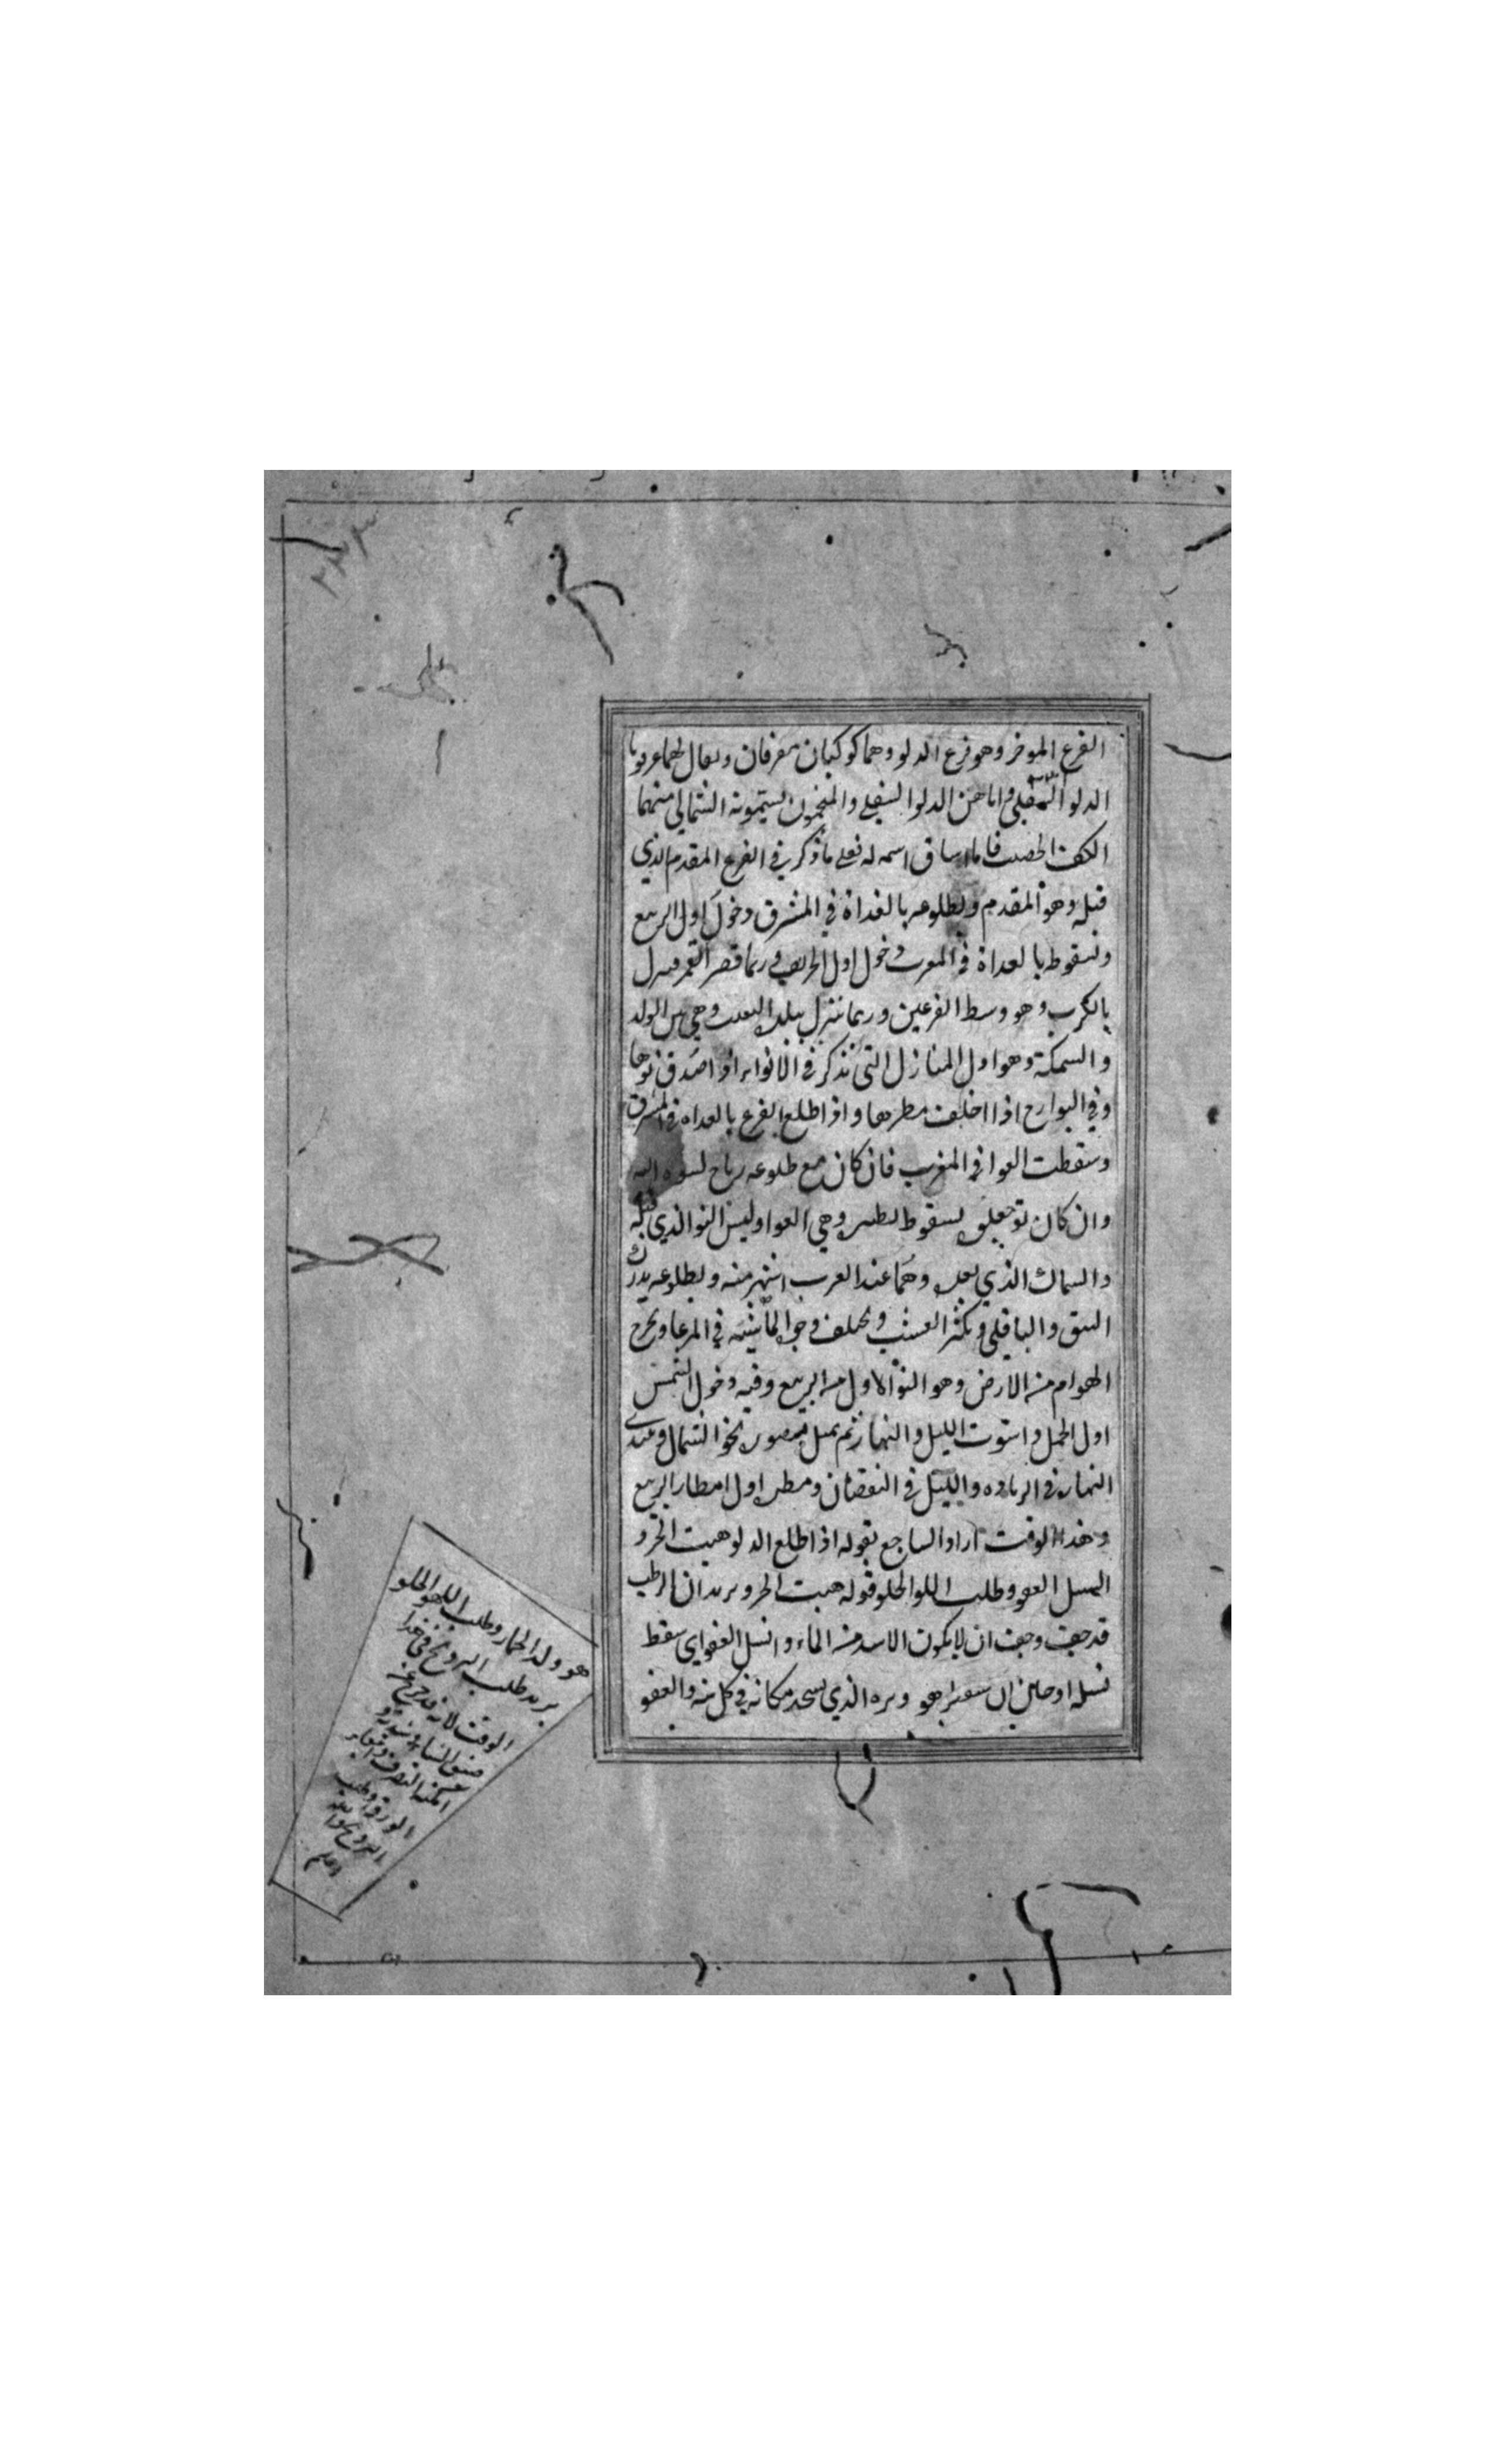 الفرع الموخر وهو فرع الدلو وهما كوكبان مفرقان ويقال لهما عرقوتا
الدلو السفلى وناهز الدلو السفلى والمنجمون يسمونه الشمالي منهما
الكف الخضيب فاما اشتاق اسمه له فعلى ما ذكر في الفرع المقدم الذي
قبله وهو المقدم ولطلوعه بالغداة في المشرق دخول اول الربيع
ولسقوطه بالغداة في المغرب دخول اول الخريف وربما قصر القمر فينزل
بالكرب وهو وسط الفرعين وربما نزل ببلدة الثعلب وهي بين الدلو
والسمكة وهو اول المنازل التي تذكر في الانواء اذا صدق نوها
وفي البوارح اذا اخلف مطرها واذا طلع الفرع بالغداة في المشرق
وسقطت العوا في المغرب فان كان مع طلوعه رياح
وان كان نو جعلو لسقوط نظيره وهي العوا وليس النو الذي قبله
والسماك الذي بعده وهما عند العرب اشهر منه ولطلوعه يدرك
النبق والباقلى ويكثر العشب ويختلف وجوه الماشية في المرعا ويخرج
الهوام من الارض وهو النو الاول من الربيع وفيه دخول الشمس
اول الحمل واستوت الليل والنهار ثم يميل نحو الشمال ويبتدى
النهار في الزيادة والليل في النقصان ومطره اول امطار الربيع
وهذا الوقت اراد الساجع بقوله اذا طلع الدلو هيبت الجزو
انسل العفو وطلب اللهو الخلو قوله هيبت الجزو يريد ان الرطب
قد جف وخيف ان لا يكون الابد من الماء وانسل العفو اي سقط
نسله او حان ان وبره الذي يستجد مكانه في كل سنة والعفو
هو ولد الحمار وطلب اللهو الخلو
يريد طلب التزويج في هذا
الوقت لانه قد خرج عنه
ضيق الشتاء وشدته و
امكنه التصرف
وطلب
التزويج والله
اعلم